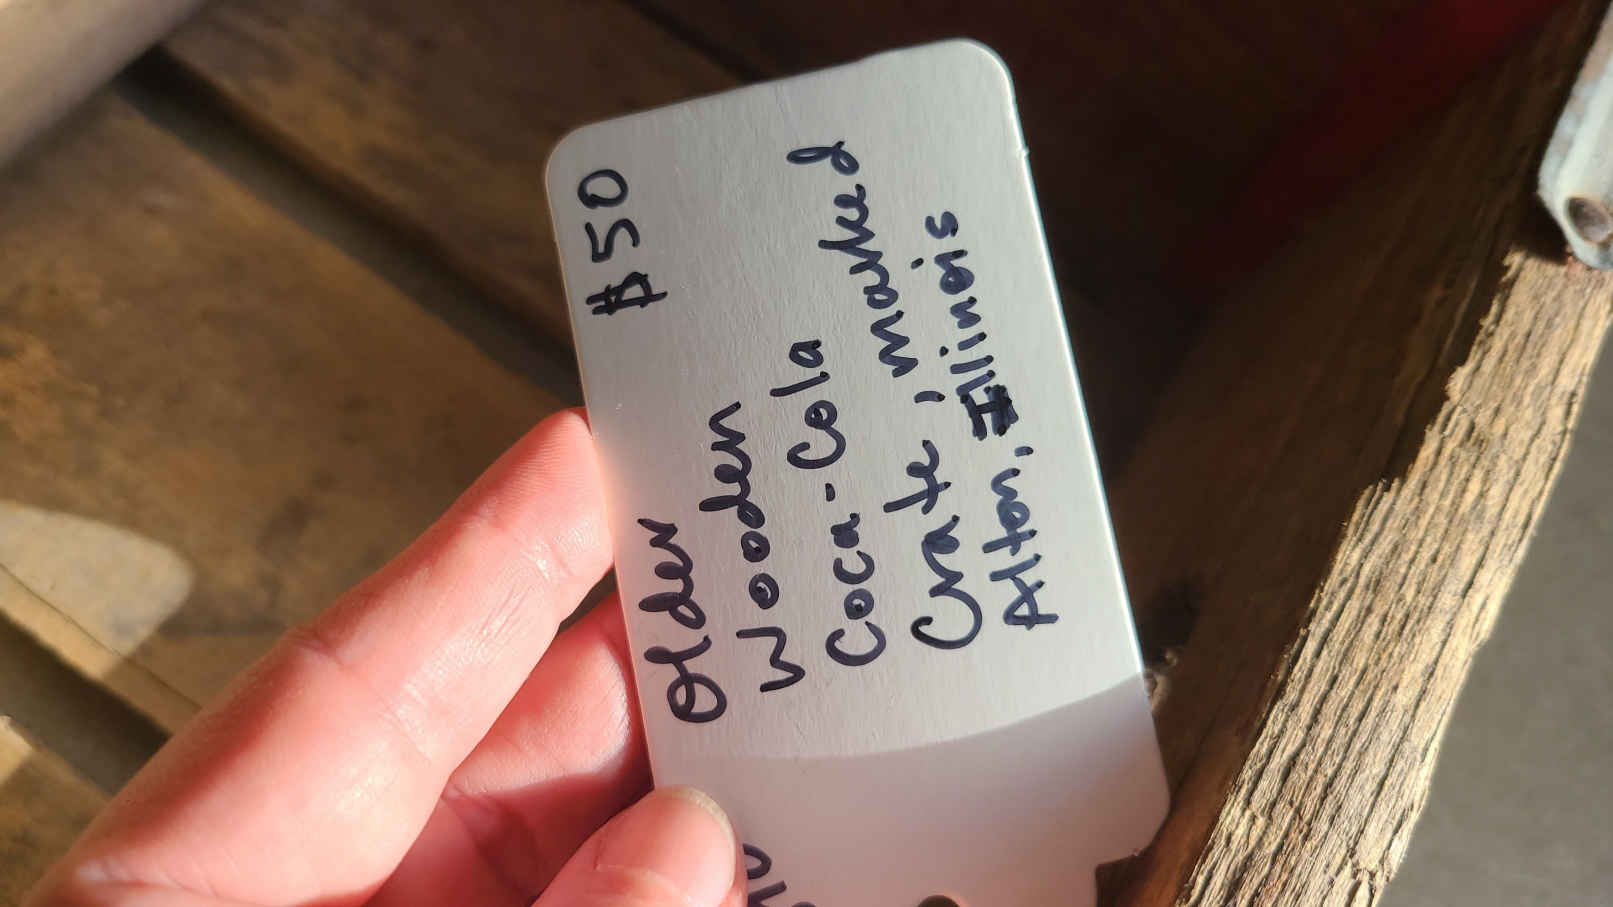 $50
Older
Wooden
Coca-Cola
Crate, marked
Alton, Illinois